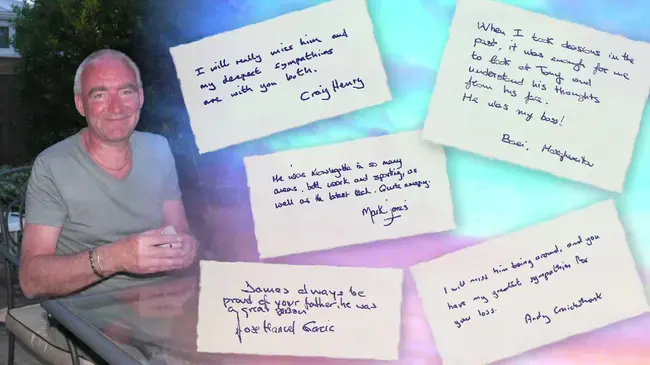 I will really miss him and
my deepest sympathies
are with you both.
Craig Henry
When I took decisions in the
past, it was enough for me
to look at Tony and
understand his thoughts
from his face.
He was my boss!
He was knowlegable in so many
areas, both work and sporting, as
well as the latest tech. Quite amazing.
Mark Jones
James always be
proud of your father, he was
a great person
Jose Manuel
I will miss him being around, and you
have my greatest sympathies for
your loss.
Andy